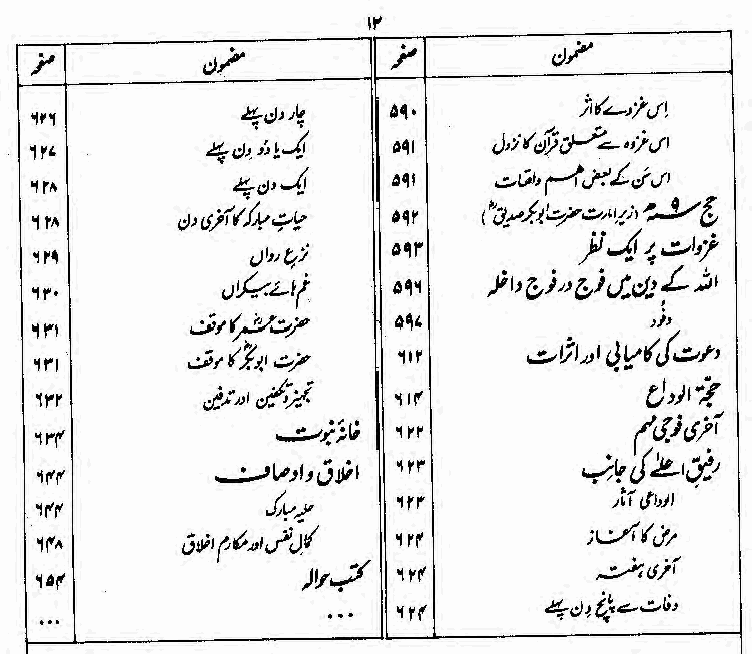 ۱۲
مضمون صفحہ
اِس غزوے کا اثر ۵۹۰
اس غزوہ سے متعلق قرآن کا نزول ۵۹۱
اس سَن کے بعض اہم واقعات ۵۹۱
حج ۹ھ (زیرِ امارت حضرت ابوبکر صدیقؓ) ۵۹۲
غزوات پر ایک نظر ۵۹۳
اللہ کے دین میں فوج در فوج داخلہ ۵۹۶
وفُود ۵۹۷
دعوت کی کامیابی اور اثرات ۶۱۲
حجۃ الوداع ۶۱۴
آخری فوجی مہم ۶۲۲
رفیقِ اعلیٰ کی جانب ۶۲۳
الوداعی آثار ۶۲۳
مرض کا آغاز ۶۲۴
آخری ہفتہ ۶۲۴
وفات سے پانچ دِن پہلے ۶۲۴
مضمون صفحہ
چار دن پہلے ۶۲۶
ایک یا دُو دِن پہلے ۶۲۷
ایک دن پہلے ۶۲۸
حیاتِ مبارکہ کا آخری دن ۶۲۸
نزعِ رواں ۶۲۹
غم ہائے بیکراں ۶۳۰
حضرت عمرؓ کا موقف ۶۳۱
حضرت ابوبکرؓ کا موقف ۶۳۱
تجہیز و تکفین اور تدفین ۶۳۲
خانۂ نبوت ۶۳۴
اخلاق و اوصاف ۶۴۴
حلیہ مبارک ۶۴۴
کمالِ نفس اور مکارمِ اخلاق ۶۴۸
کتب حوالہ ۶۵۴
... ...